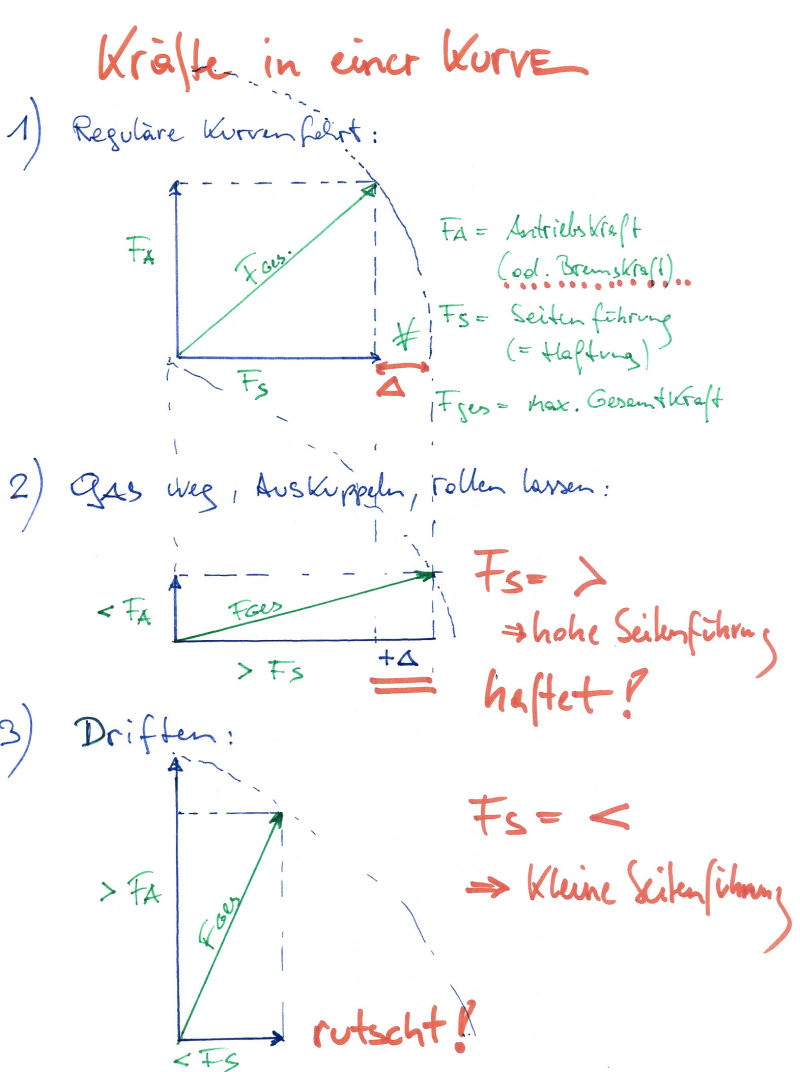 Kräfte in einer Kurve
1) Reguläre Kurvenfahrt:
FA
FGes.
FS
Δ
FA = Antriebskraft
(od. Bremskraft)
FS = Seitenführung
(= Haftung)
Fges = max. Gesamtkraft
2) GAS weg, Auskuppeln, rollen lassen:
< FA
FGes
> FS
+Δ
FS = >
⇒ hohe Seitenführung
haftet!
3) Driften:
> FA
FGes
< FS
FS = <
⇒ kleine Seitenführung
rutscht!